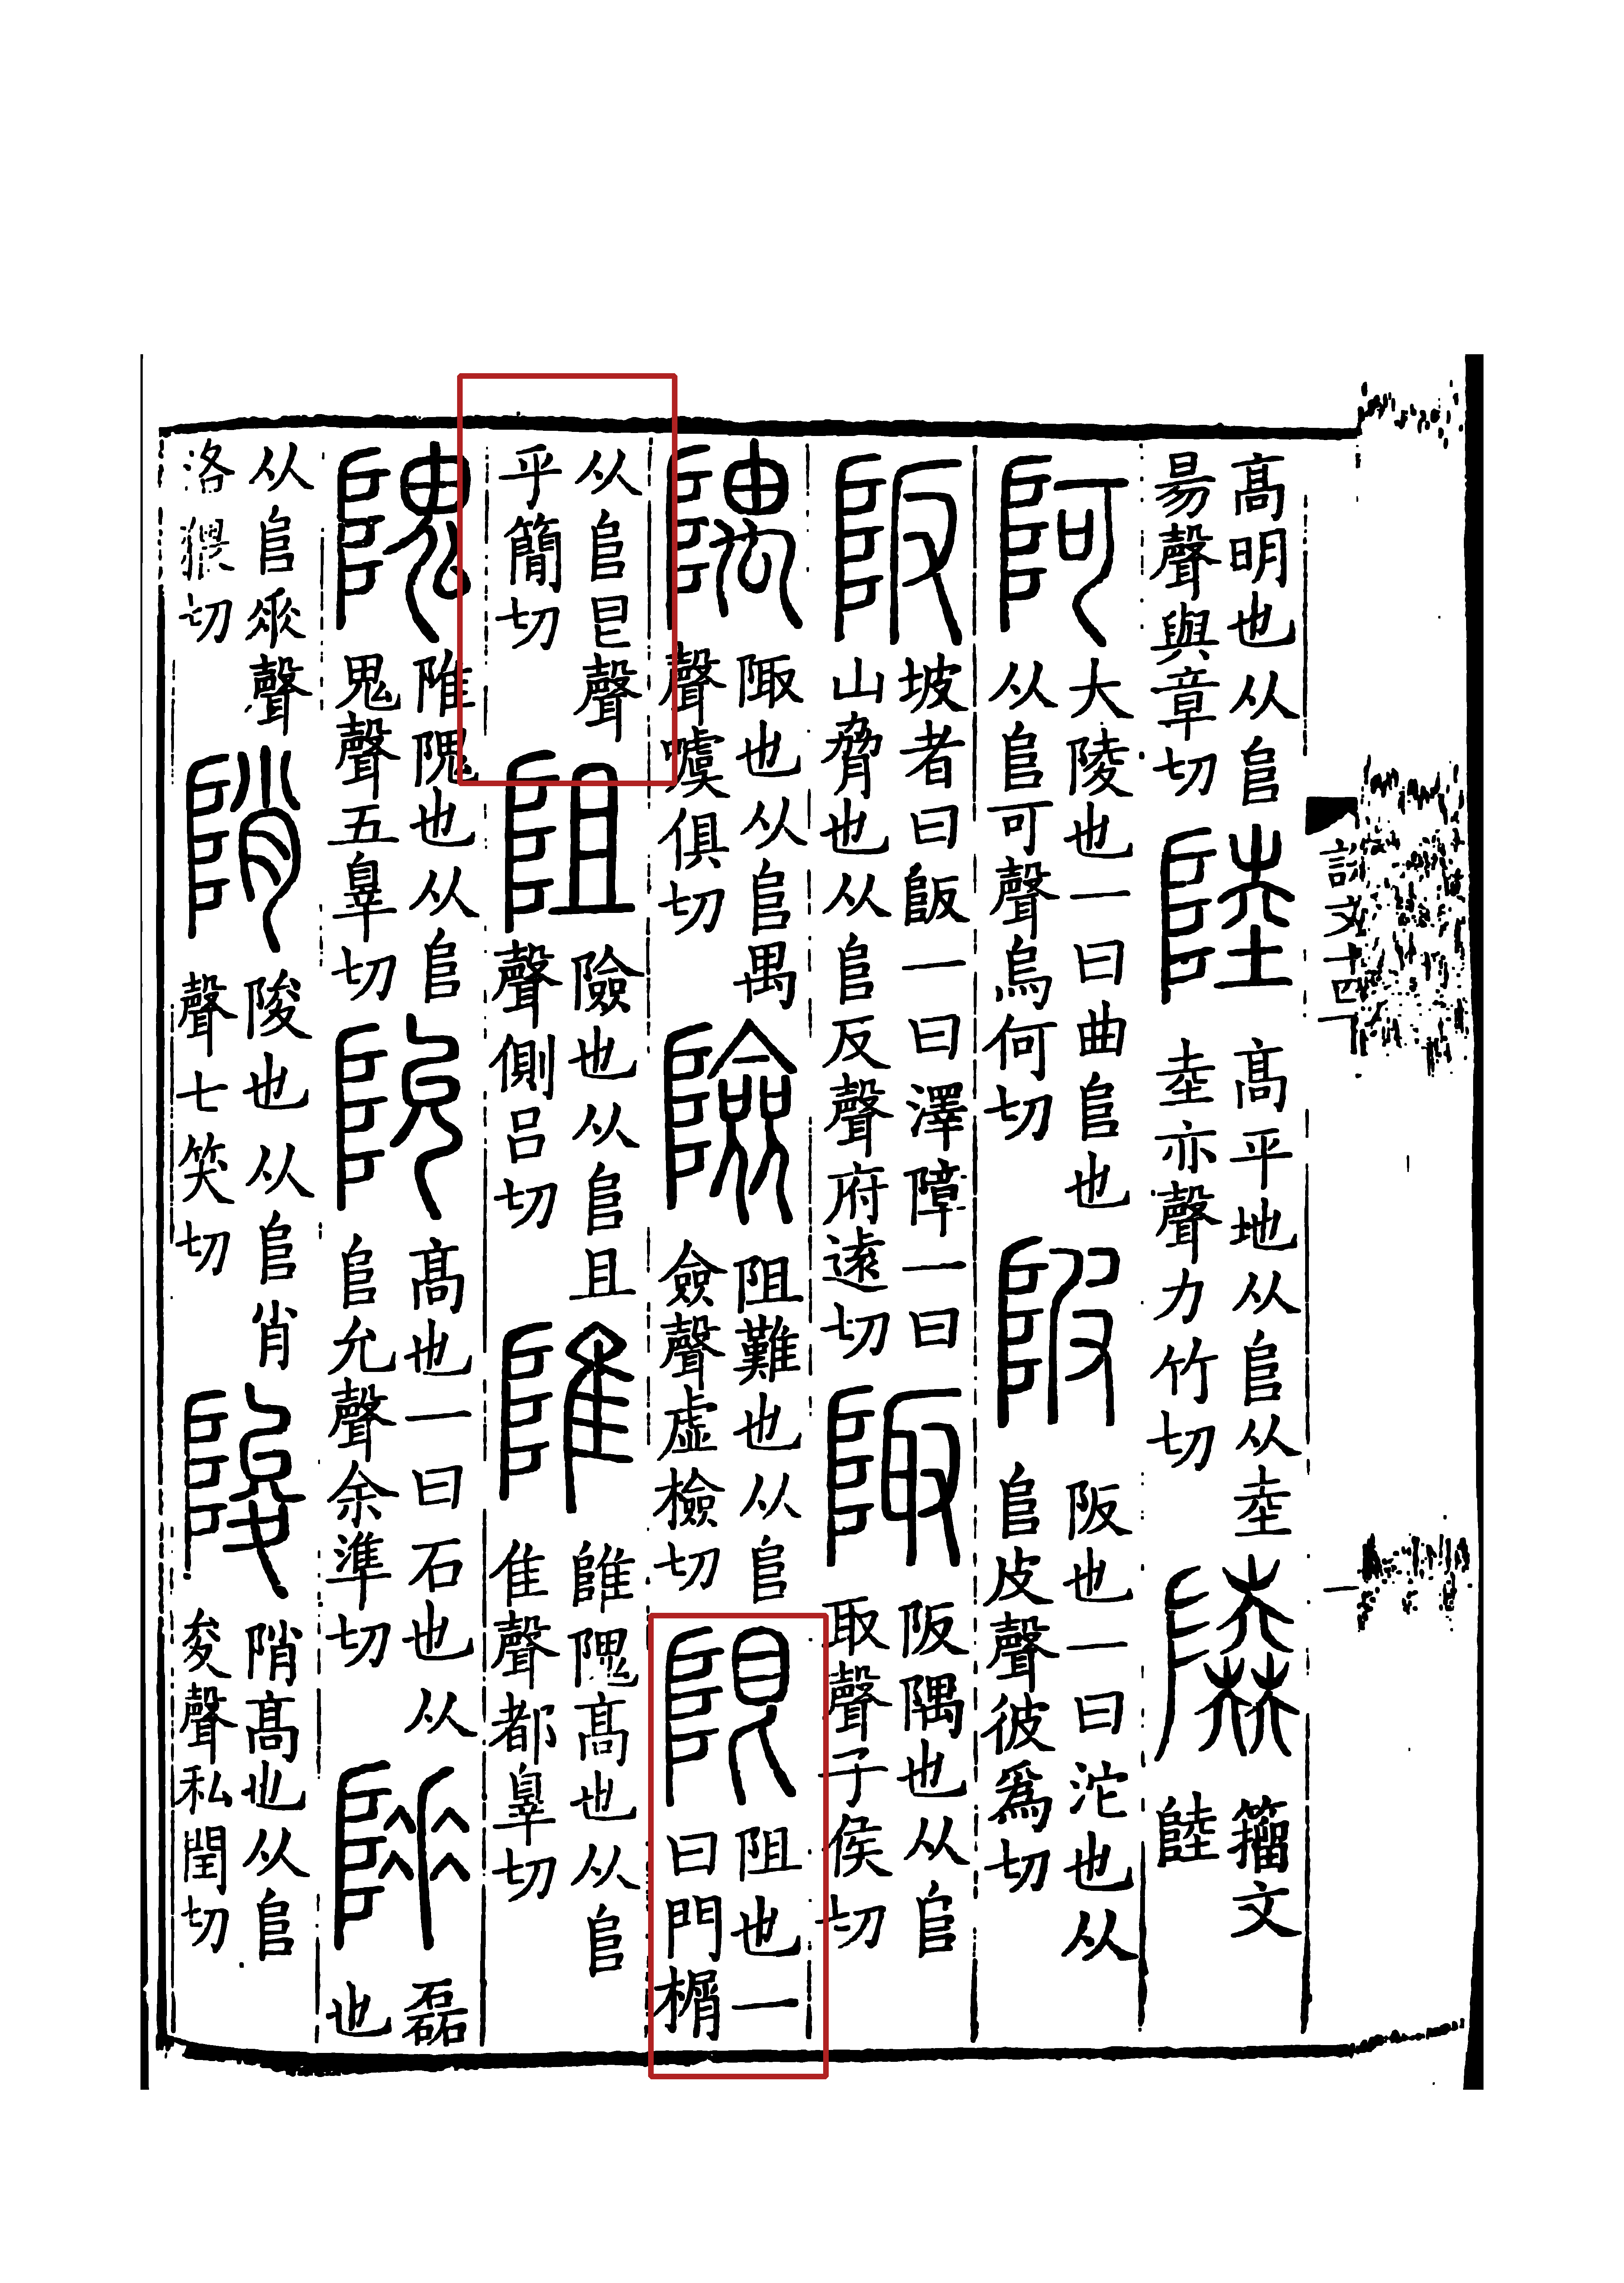 髙明也从𨸏昜聲與章切陸髙平地从𨸏从坴坴亦聲力竹切𨽰籒文陸
阿大陵也一曰曲𨸏也从𨸏可聲烏何切陂阪也一曰沱也从𨸏皮聲彼爲切
阪坡者曰阪一曰澤障一曰山脅也从𨸏反聲府遠切陬阪隅也从𨸏取聲子侯切
隅陬也从𨸏禺聲噳俱切險阻難也从𨸏僉聲虛檢切限阻也一曰門榍
从𨸏㫐聲乎簡切阻險也从𨸏且聲側呂切陮陮隗髙也从𨸏隹聲都辠切
隗陮隗也从𨸏鬼聲五辠切阭髙也一曰石也从𨸏允聲余準切𨺅磊也
从𨸏𠂢聲洛猥切陗陖也从𨸏肖聲七笑切陖陗髙也从𨸏夋聲私閏切